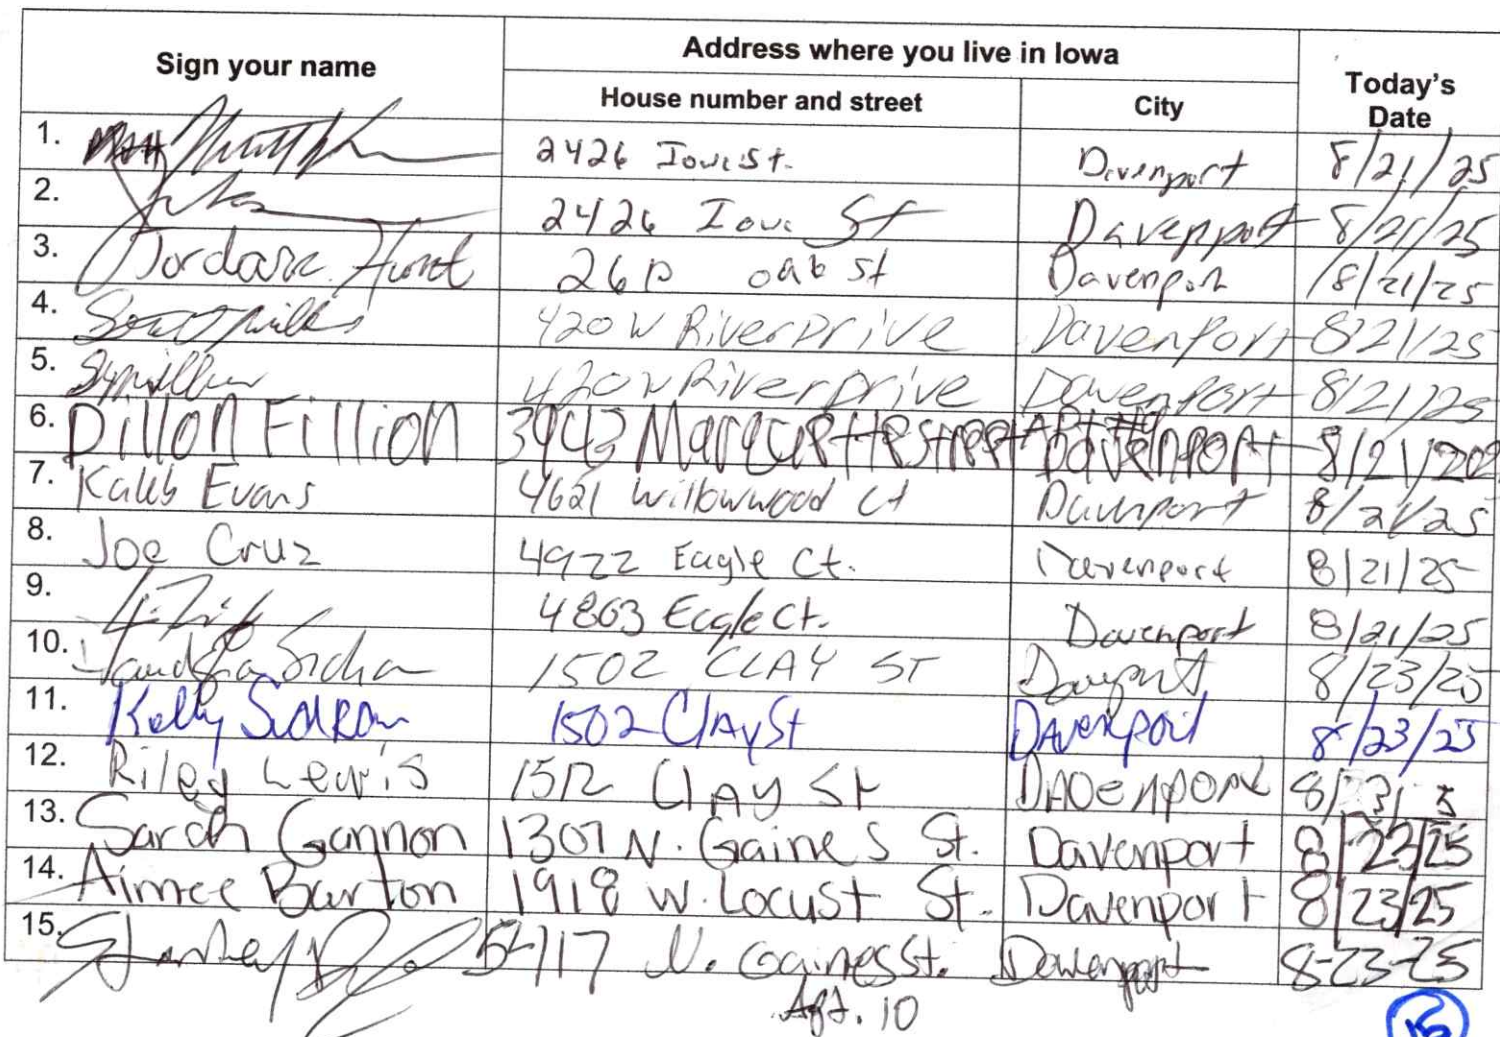 Sign your name Address where you live in Iowa Today's Date
House number and street City
1. 2426 Iowa St. Davenport 8/21/25
2. 2426 Iowa St Davenport 8/21/25
3. Hunt oak st Davenport 8/21/25
4. 420 W River Drive Davenport 8/21/25
5. 420 W River Drive Davenport 8/21/25
6. Dillon Fillion 3943 Marquette Street APT #9 Davenport 8/21/202
7. Kaleb Evans 4621 Willowwood Ct Davenport 8/21/25
8. Joe Cruz 4922 Eagle Ct. Davenport 8/21/25
9. 4803 Eagle Ct. Davenport 8/21/25
10. 1502 CLAY ST Davenport 8/23/25
11. Kelly 1502 Clay St Davenport 8/23/25
12. Riley Lewis 1512 Clay St Davenport
13. Sarah Gannon 1307 N. Gaines St. Davenport 8/23/25
14. Aimee Burton 1918 W. Locust St. Davenport 8/23/25
15. Stanley N. Gaines St. Davenport 8-23-25
Apt. 10
15